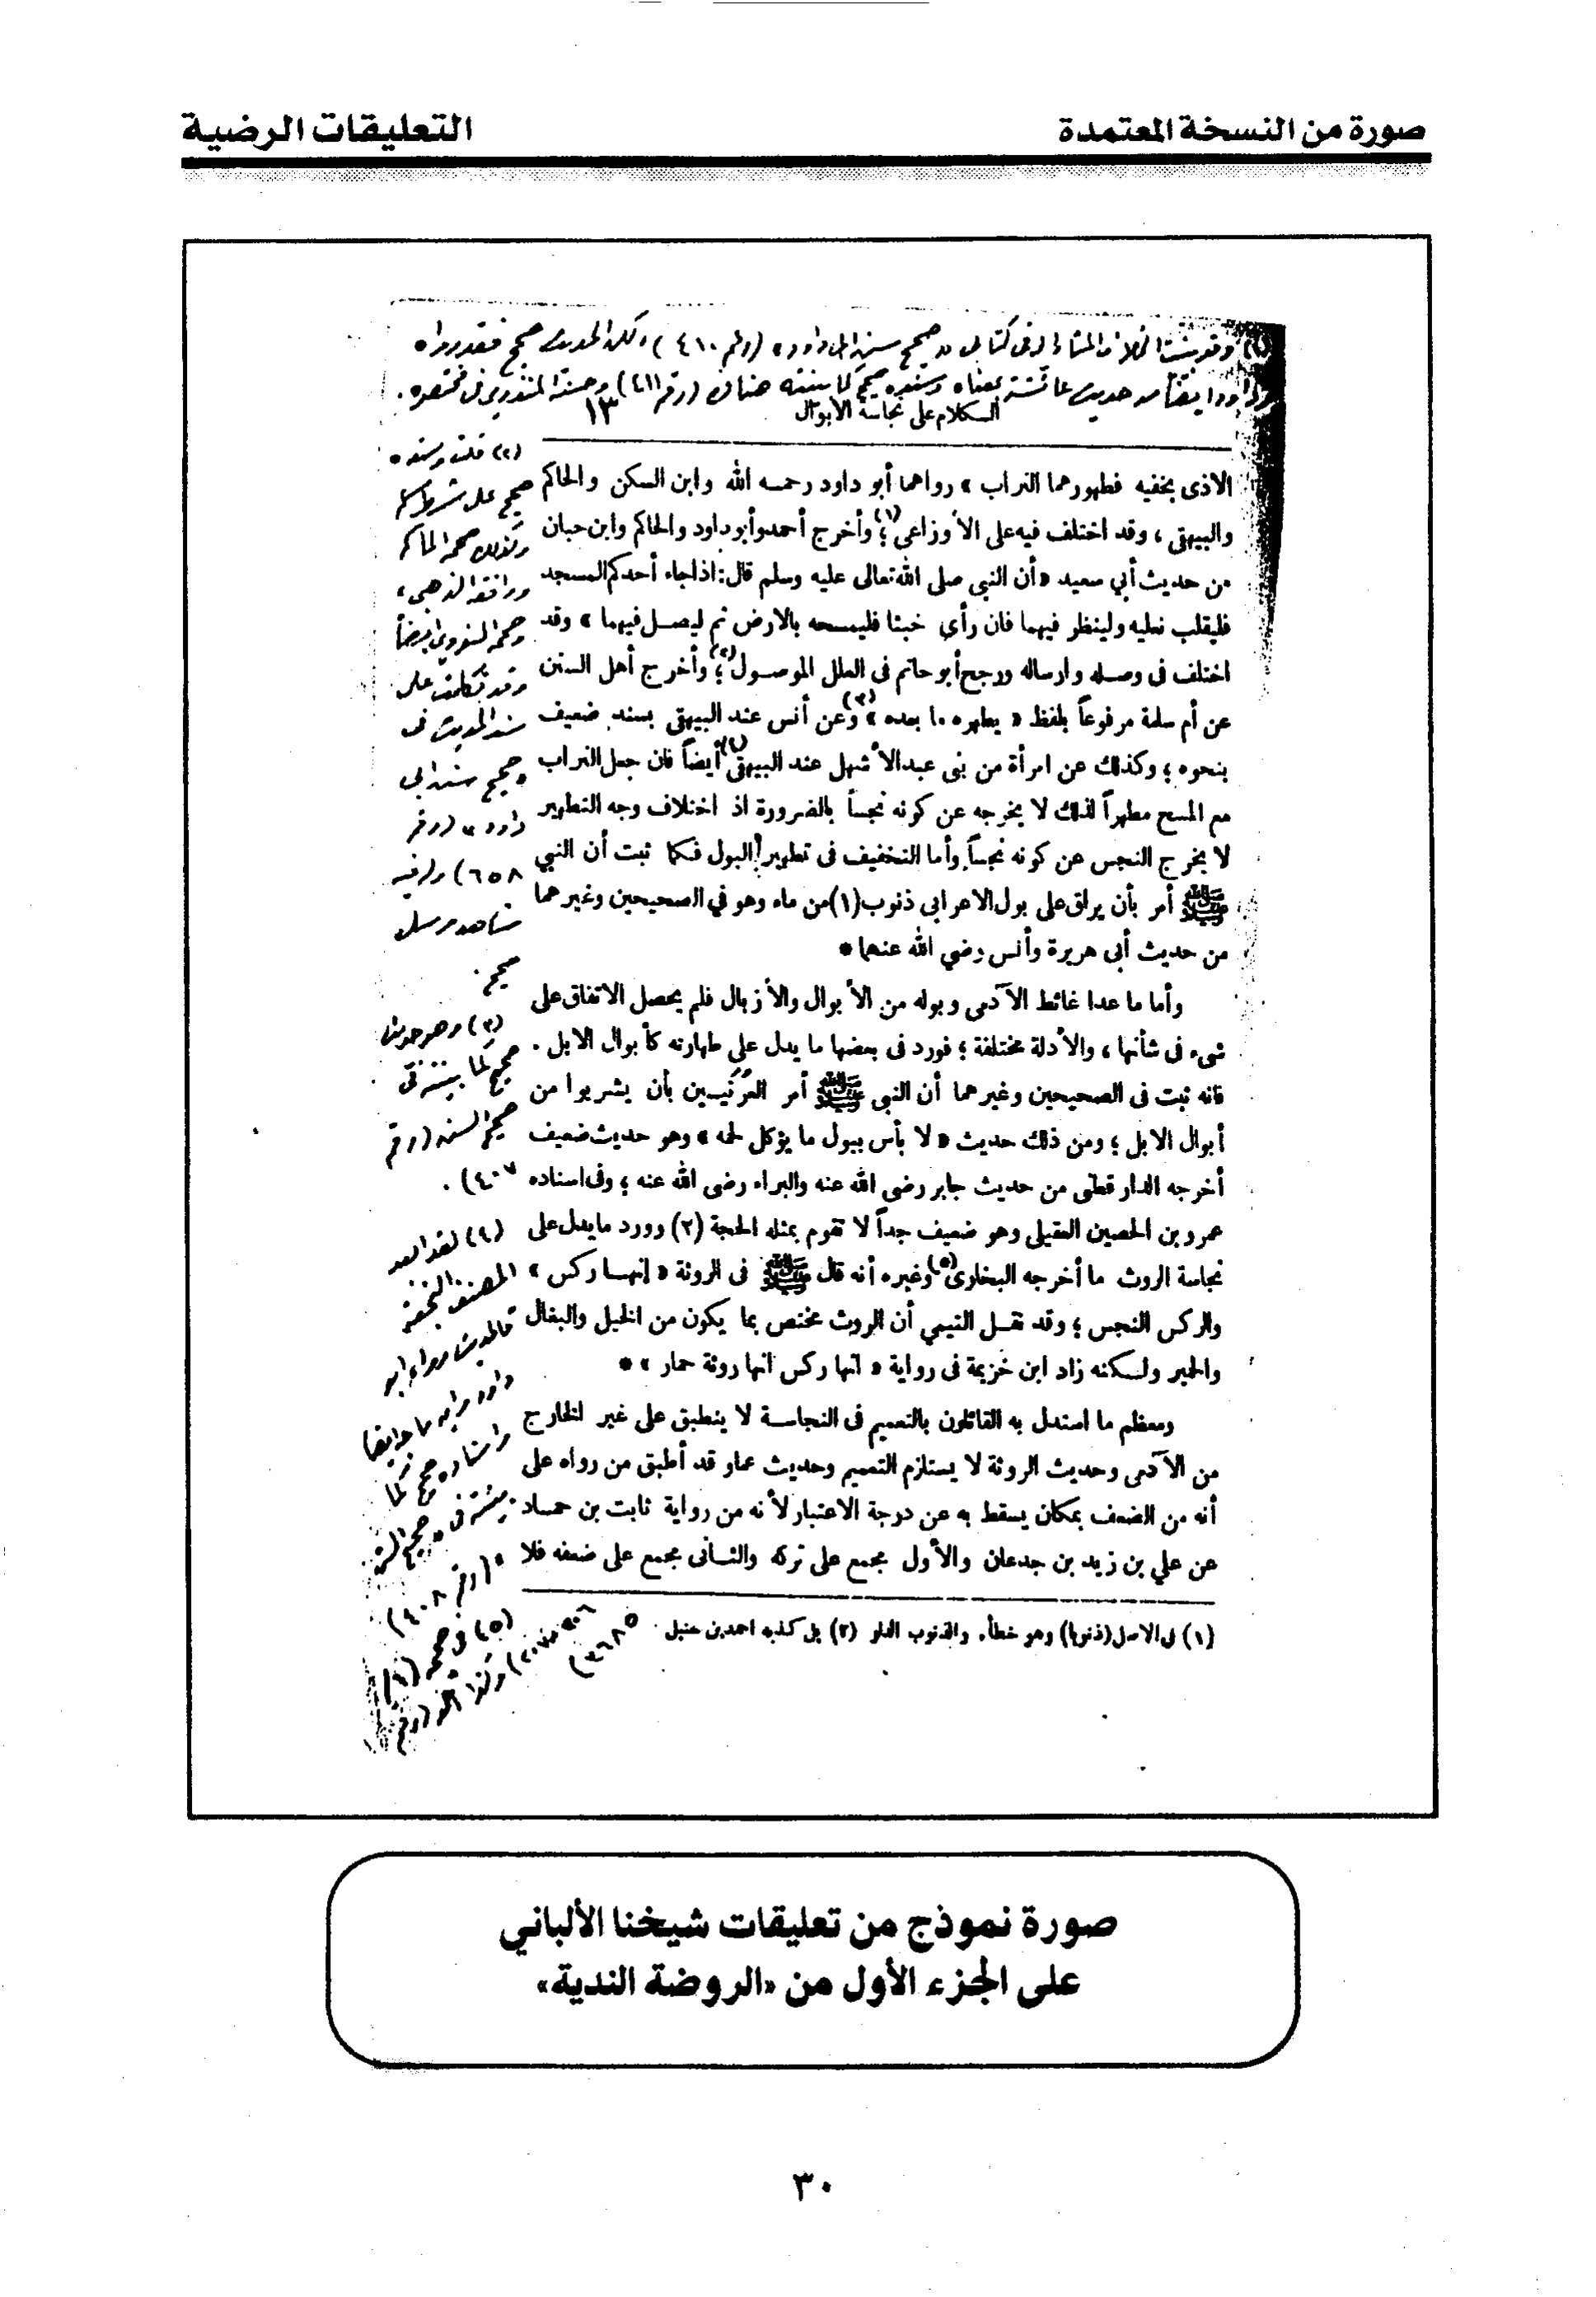 صورة من النسخة المعتمدة
التعليقات الرضية
الكلام على نجاسة الابوال ١٣
الاذى بخفيه فطهورهما التراب » رواهما أبو داود رحمه الله وابن السكن والحاكم
والبيهقى ، وقد اختلف فيه على الأوزاعى (١) ؛ وأخرج أحمد وأبو داود والحاكم وابن حبان
من حديث أبي سعيد « أن النبى صلى الله تعالى عليه وسلم قال : اذا جاء أحدكم المسجد
فليقلب نعليه ولينظر فيهما فان رأى خبثا فليمسحه بالارض ثم ليصل فيهما » وقد
اختلف فى وصله وارساله ورجح أبو حاتم فى العلل الموصول (٢) ؛ وأخرج أهل السنن
عن أم سلمة مرفوعاً بلفظ « يطهره ما بعده » (٣) وعن أنس عند البيهقى بسند ضعيف
بنحوه ؛ وكذلك عن امرأة من بنى عبد الأشهل عند البيهقى (٤) أيضاً فان جعل التراب
مع المسح مطهراً لذلك لا يخرجه عن كونه نجساً بالضرورة اذ اختلاف وجه التطهير
لا يخرج النجس عن كونه نجساً وأما التخفيف فى تطهير البول فكما ثبت أن النبي
ﷺ أمر بأن يراق على بول الاعرابى ذنوب (١) من ماء وهو في الصحيحين وغيرهما
من حديث أبى هريرة وأنس رضي الله عنهما *
وأما ما عدا غائط الآدمى وبوله من الأبوال والأزبال فلم يحصل الاتفاق على
شىء فى شأنها ، والأدلة مختلفة ؛ فورد فى بعضها ما يدل على طهارته كأبوال الابل .
فانه ثبت فى الصحيحين وغيرهما أن النبى ﷺ أمر العُرَنيين بأن يشربوا من
أبوال الابل ؛ ومن ذلك حديث « لا بأس ببول ما يؤكل لحمه » وهو حديث ضعيف
أخرجه الدارقطنى من حديث جابر رضى الله عنه والبراء رضى الله عنه ؛ وفى اسناده
عمرو بن الحصين العقيلى وهو ضعيف جداً لا تقوم بمثله الحجة (٢) وورد ما يدل على
نجاسة الروث ما أخرجه البخارى (٥) وغيره أنه قال ﷺ فى الروثة « إنها ركس »
والركس النجس ؛ وقد نقل التيمي أن الروث مختص بما يكون من الخيل والبغال
والحمير ولسكنه زاد ابن خزيمة فى رواية « انها ركس انها روثة حمار » *
ومعظم ما استدل به القائلون بالتعميم فى النجاسة لا ينطبق على غير الخارج
من الآدمى وحديث الروثة لا يستلزم التعميم وحديث عمار قد أطبق من رواه على
أنه من الضعف بمكان يسقط به عن درجة الاعتبار لأنه من رواية ثابت بن حماد
عن علي بن زيد بن جدعان والأول مجمع على تركه والثانى مجمع على ضعفه فلا
(١) فى الاصل (ذنوبا) وهو خطأ. والذنوب الدلو (٢) بل كذبه احمد بن حنبل
(٢) قلت وسنده
صحيح على شرط مسلم
وكذلك صححه الحاكم
ووافقه الذهبى ،
وصححه النووي أيضاً
وقد تكلمت على
سند الحديث فى
« صحيح سنن أبي
داود » (رقم
٦٥٨)
شاهد مرسل
صحيح .
(٣) وهو حديث
صحيح كما بينته فى
صحيح السنن (رقم
٤٠٧) .
صورة نموذج من تعليقات شيخنا الألباني
على الجزء الأول من «الروضة الندية»
٣٠